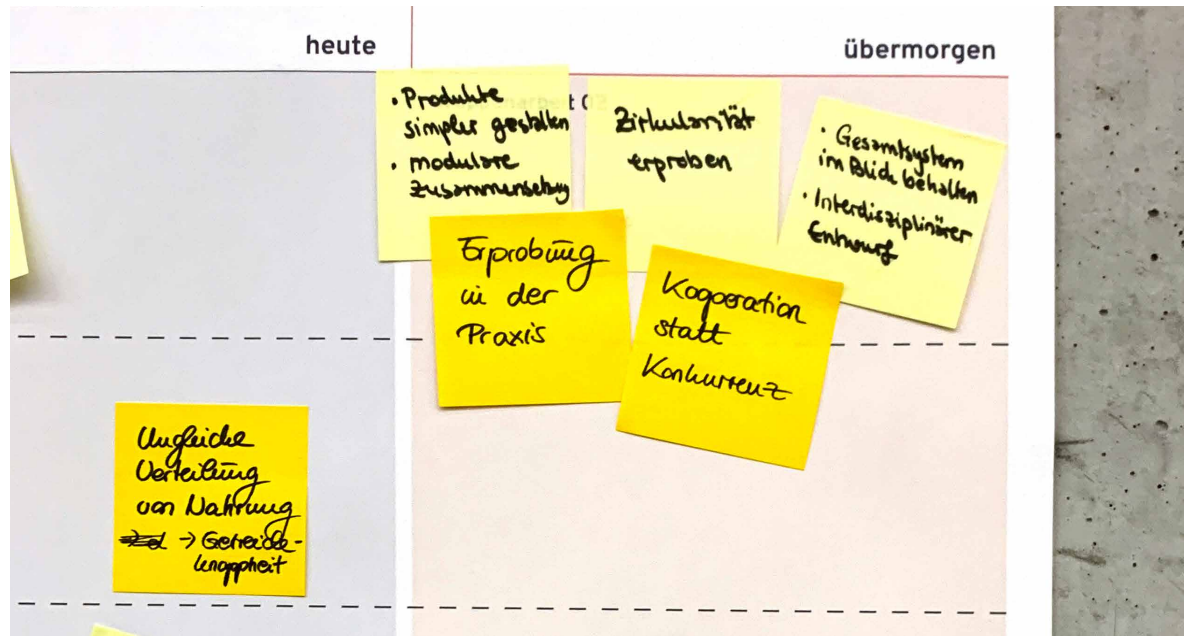 heute
übermorgen
• Produkte
simpler gestalten
• modulare
Zusammensetzung
Zirkularität
erproben
• Gesamtsystem
im Blick behalten
• Interdisziplinärer
Entwurf
Erprobung
in der
Praxis
Kooperation
statt
Konkurrenz
Ungleiche
Verteilung
von Nahrung
→ Getreide-
knappheit